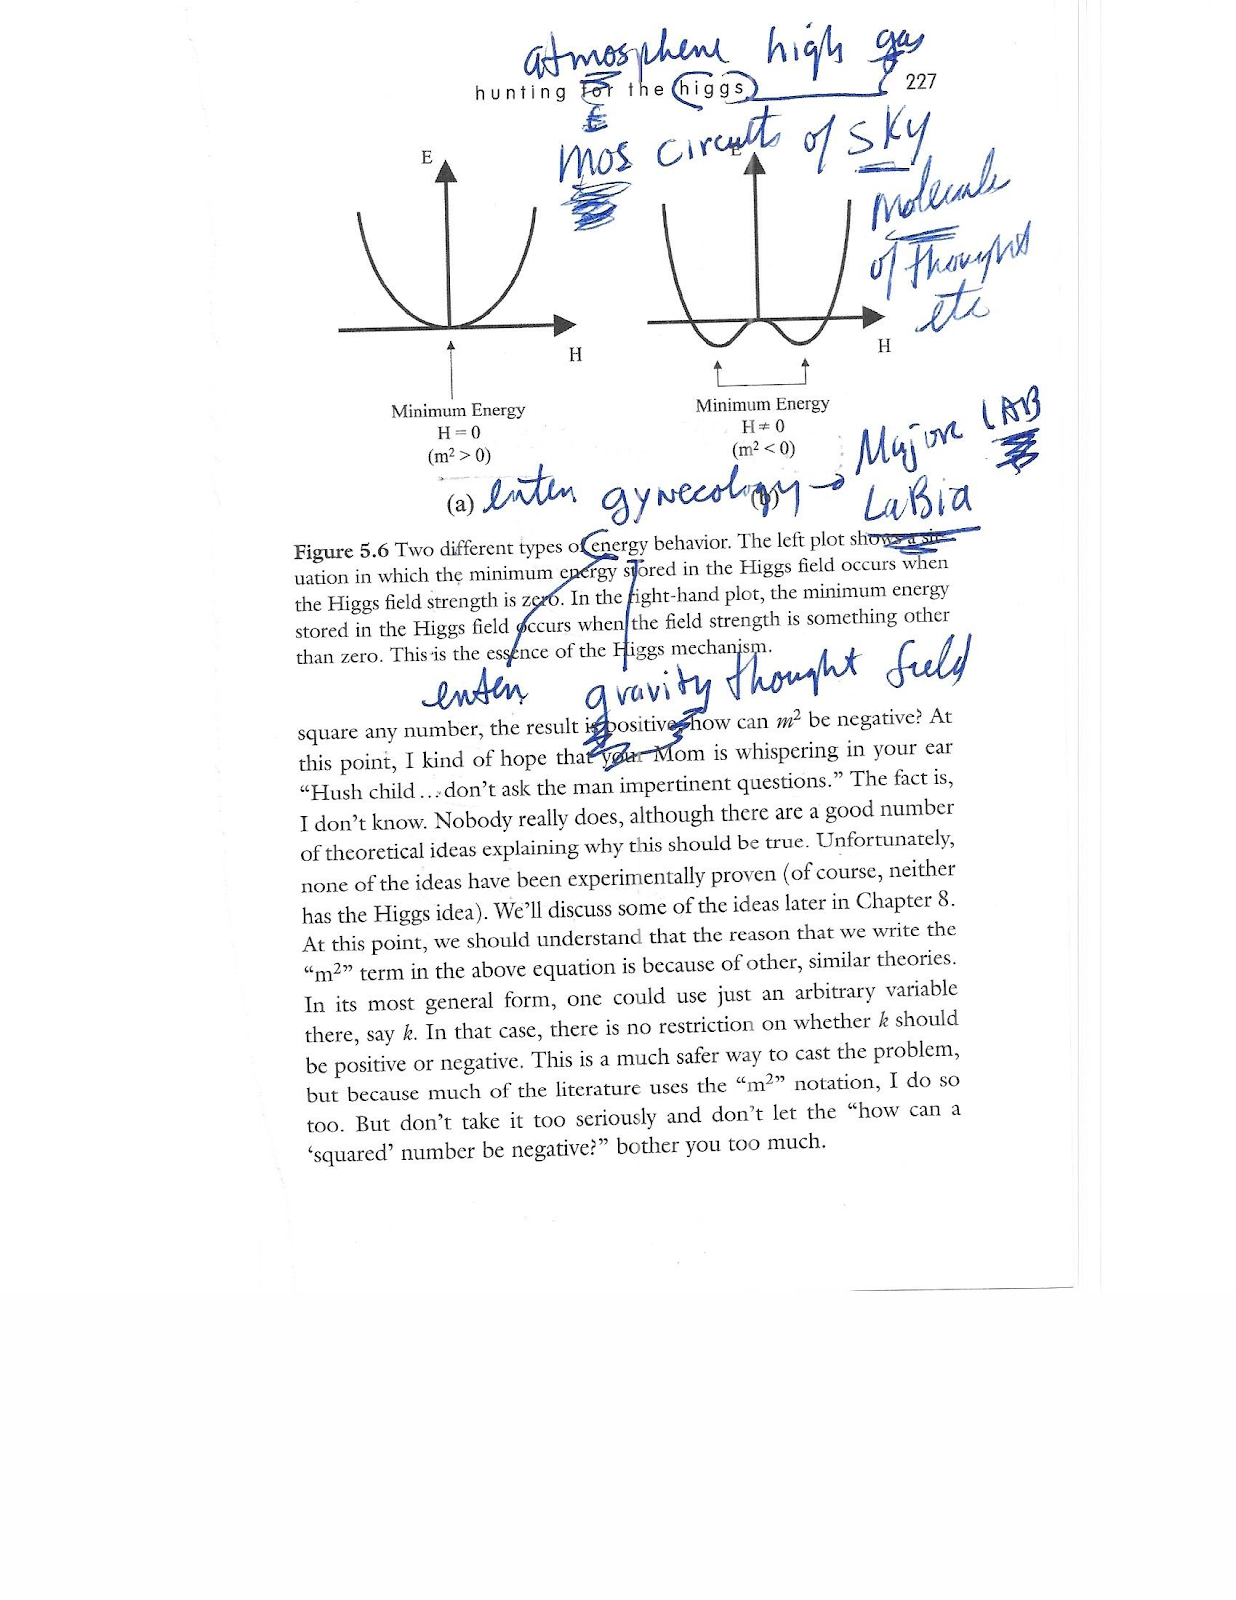 atmosphere high gas
hunting for the higgs 227
E
mos circuits of sky
E
E
molecule
of thought
etc
H
H
Minimum Energy
H = 0
(m² > 0)
Minimum Energy
H ≠ 0
(m² < 0)
Major LAB
(a) enter gynecology → LaBia
(b)
Figure 5.6 Two different types of energy behavior. The left plot shows a sit-
uation in which the minimum energy stored in the Higgs field occurs when
the Higgs field strength is zero. In the right-hand plot, the minimum energy
stored in the Higgs field occurs when the field strength is something other
than zero. This is the essence of the Higgs mechanism.
enter gravity thought field
square any number, the result is positive, how can m² be negative? At
this point, I kind of hope that your Mom is whispering in your ear
“Hush child...don’t ask the man impertinent questions.” The fact is,
I don’t know. Nobody really does, although there are a good number
of theoretical ideas explaining why this should be true. Unfortunately,
none of the ideas have been experimentally proven (of course, neither
has the Higgs idea). We’ll discuss some of the ideas later in Chapter 8.
At this point, we should understand that the reason that we write the
“m²” term in the above equation is because of other, similar theories.
In its most general form, one could use just an arbitrary variable
there, say k. In that case, there is no restriction on whether k should
be positive or negative. This is a much safer way to cast the problem,
but because much of the literature uses the “m²” notation, I do so
too. But don’t take it too seriously and don’t let the “how can a
‘squared’ number be negative?” bother you too much.